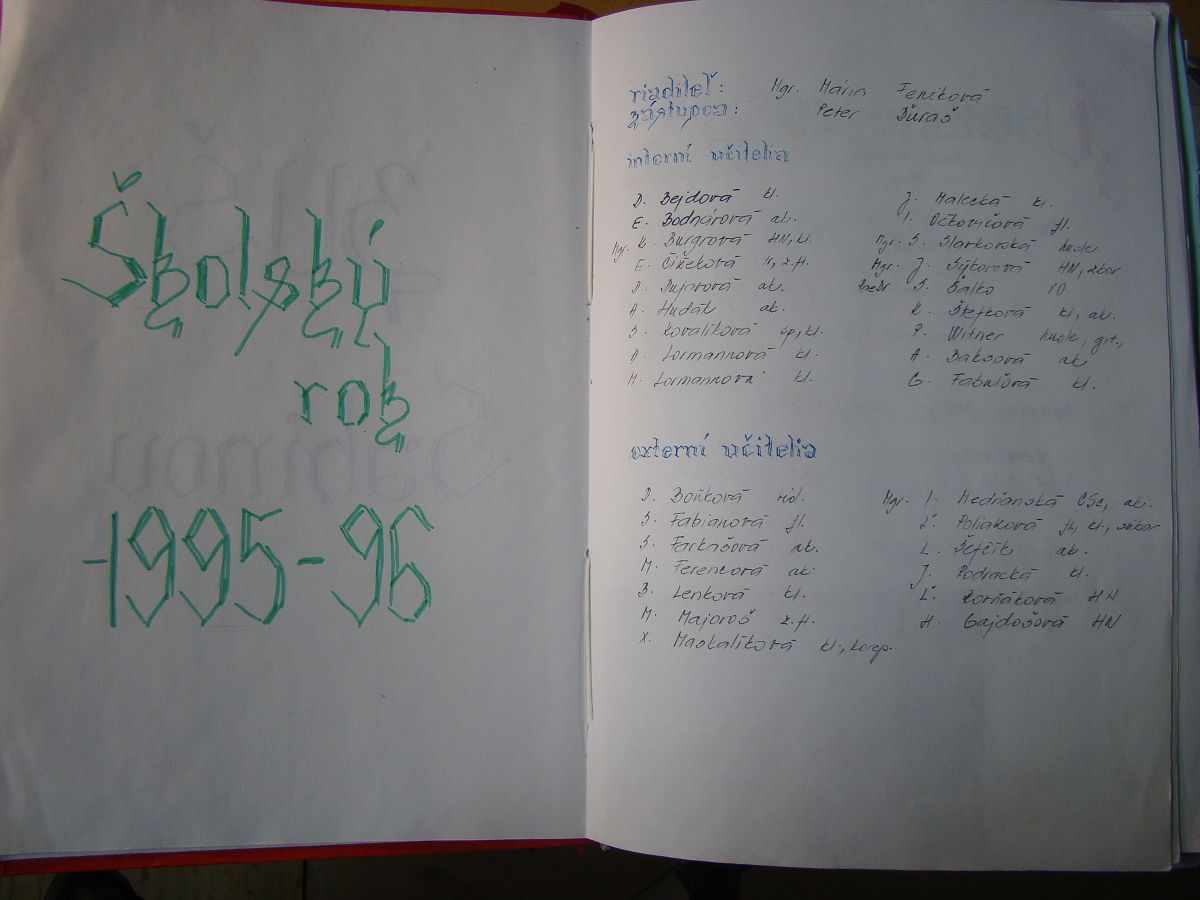 Školský
rok
1995-96
riaditeľ: Mgr. Mária Feníková
zástupca: Peter Ďuraš
interní učitelia
D. Bejdová kl.
E. Bodnárová ak.
Mgr. K. Burgrová HN, kl.
E. Čižeková
D. Dujavová ak.
A. Hudák ak.
S. Kovalíková sp, kl.
A. Lormannová kl.
M. Lormannová kl.
J. Malecká kl.
I. Očkovičová fl.
Mgr. S. husle
Mgr. J. Sýkorová HN, zbor
PaeDr S. Šalko VO
K. Štefková kl, ak.
P. Witner husle, git.,
A. Baksová ak
G. Fabuľová kl.
externí učitelia
D. Boňková rid.
S. Fabianová fl.
S. Farkašová ak.
M. Ferencová ak.
B. Lenková kl.
M. Majoroš z.H.
X. Maskalíková kl., korep.
Mgr. I. Medňanská CSc, ak.
Ľ. Poliaková fl, kl., súbor
L. Šefčík ak.
J. Podracká kl.
Ľ. HN
H. Gajdošová HN